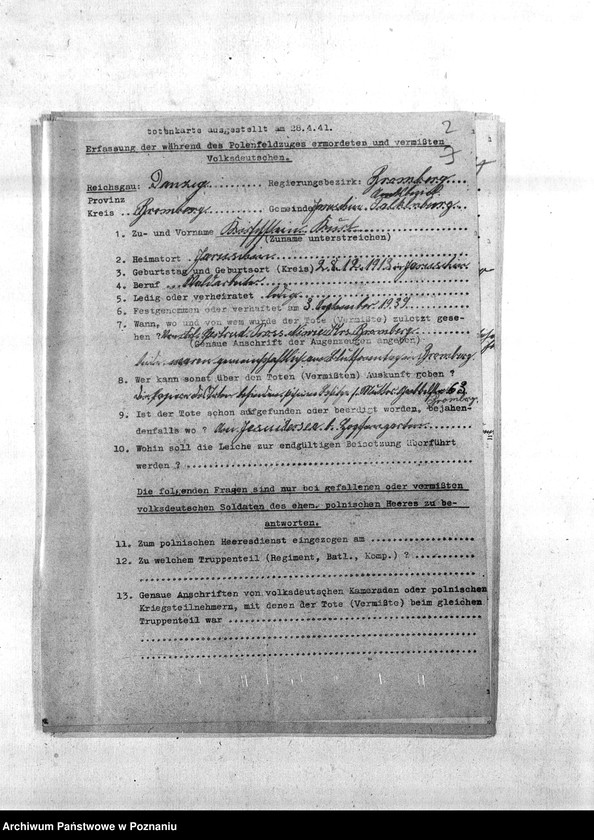 totenkarte ausgestellt am 28.4.41.
2
3
Erfassung der während des Polenfeldzuges ermordeten und vermißten
Volksdeutschen.
Reichsgau: Danzig Regierungsbezirk: Bromberg
Provinz
Kreis Bromberg Gemeinde
1. Zu- und Vorname Kurt
(Zuname unterstreichen)
2. Heimatort
3. Geburtstag und Geburtsort (Kreis) 28.12.1913 in
4. Beruf Waldarbeiter
5. Ledig oder verheiratet ledig
6. Festgenommen oder verhaftet am 3. September 1939
7. Wann, wo und von wem wurde der Tote (Vermißte) zuletzt gese-
hen ? Bromberg
(Genaue Anschrift der Augenzeugen angeben)
waren gemeinschaftlich am in Bromberg
8. Wer kann sonst über den Toten (Vermißten) Auskunft geben ?
63
Bromberg
9. Ist der Tote schon aufgefunden oder beerdigt worden, bejahen-
denfalls wo ? am Jesuitersee b.
10. Wohin soll die Leiche zur endgültigen Beisetzung überführt
werden ?
Die folgenden Fragen sind nur bei gefallenen oder vermißten
volksdeutschen Soldaten des ehem. polnischen Heeres zu be-
antworten.
11. Zum polnischen Heeresdienst eingezogen am
12. Zu welchem Truppenteil (Regiment, Batl., Komp.) ?
13. Genaue Anschriften von volksdeutschen Kameraden oder polnischen
Kriegsteilnehmern, mit denen der Tote (Vermißte) beim gleichen
Truppenteil war
Archiwum Państwowe w Poznaniu